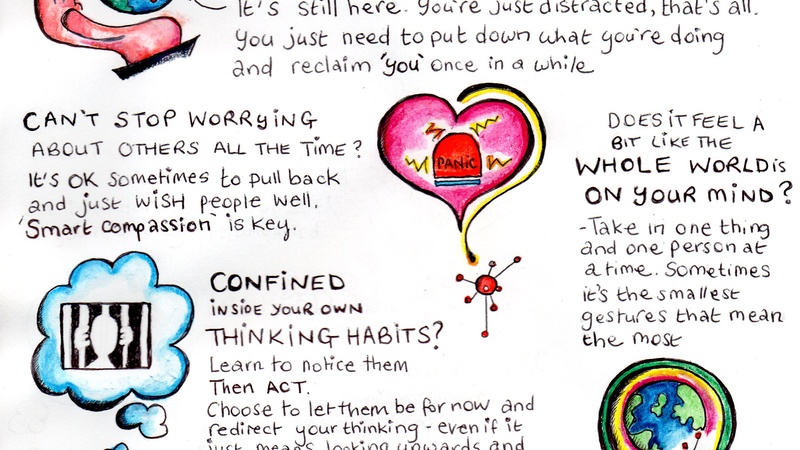 It's still here. You're just distracted, that's all.
You just need to put down what you're doing
and reclaim 'you' once in a while
CAN'T STOP WORRYING
ABOUT OTHERS ALL THE TIME?
It's OK sometimes to pull back
and just WISH people well.
'Smart compassion' is key.
PANIC
DOES IT FEEL A
BIT LIKE THE
WHOLE WORLD is
ON YOUR MIND?
-Take in one thing
and one person at
a time. Sometimes
it's the smallest
gestures that mean
the most
CONFINED
INSIDE YOUR OWN
THINKING HABITS?
Learn to notice them
Then ACT.
Choose to let them be for now and
redirect your thinking - even if it
just means looking upwards and